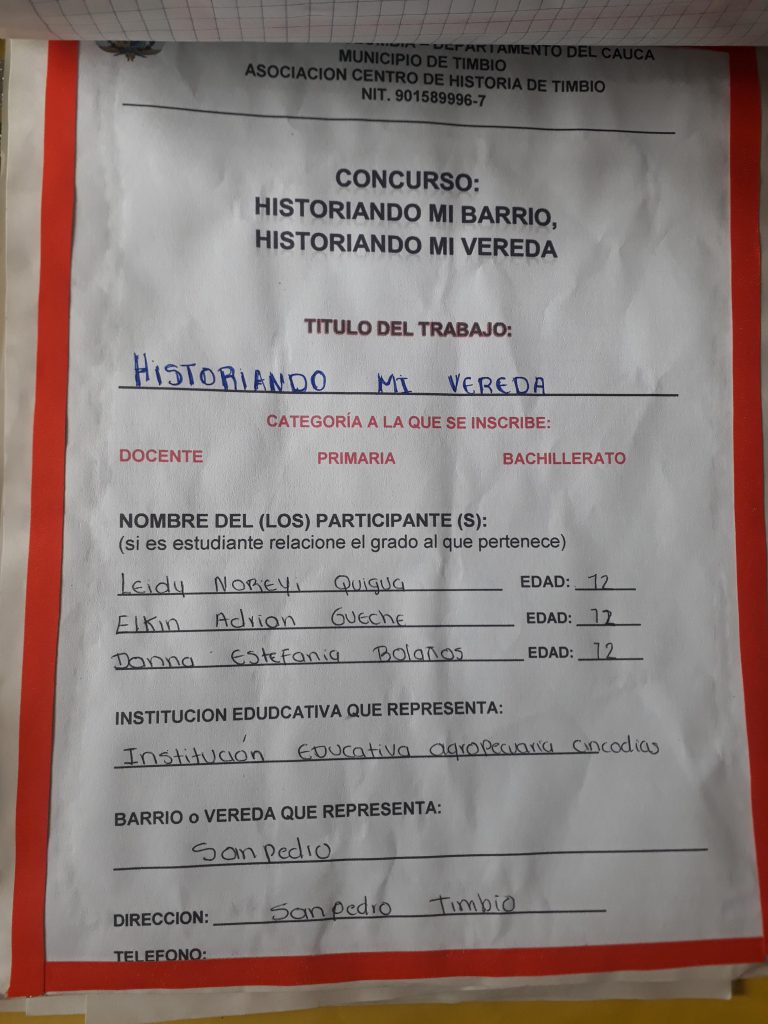 DEPARTAMENTO DEL CAUCA
MUNICIPIO DE TIMBIO
ASOCIACION CENTRO DE HISTORIA DE TIMBIO
NIT. 901589996-7
CONCURSO:
HISTORIANDO MI BARRIO,
HISTORIANDO MI VEREDA
TITULO DEL TRABAJO:
HISTORIANDO MI VEREDA
CATEGORÍA A LA QUE SE INSCRIBE:
DOCENTE PRIMARIA BACHILLERATO
NOMBRE DEL (LOS) PARTICIPANTE (S):
(si es estudiante relacione el grado al que pertenece)
Leidy NOREYi Quigua EDAD: 12
Elkin Adrion GUECHE EDAD: 12
Danna Estefania Bolaños EDAD: 12
INSTITUCION EDUDCATIVA QUE REPRESENTA:
Institución Educativa agropecuaria cincodias
BARRIO o VEREDA QUE REPRESENTA:
San pedro
DIRECCION: San pedro Timbio
TELEFONO: